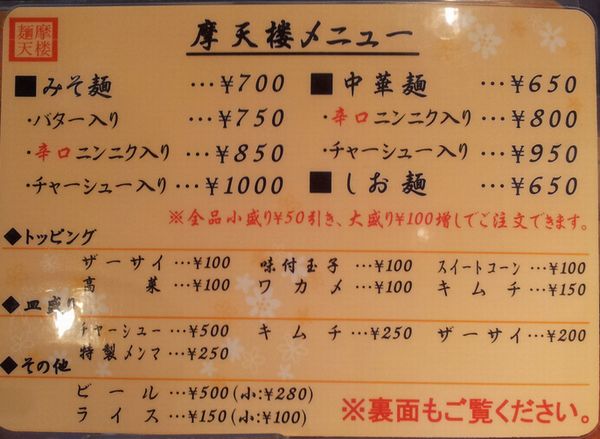 摩天楼メニュー
麺天 摩楼
■みそ麺 …¥700
・バター入り …¥750
・辛口ニンニク入り …¥850
・チャーシュー入り …¥1000
■中華麺 …¥650
・辛口ニンニク入り …¥800
・チャーシュー入り …¥950
■しお麺 …¥650
※全品小盛り¥50引き、大盛り¥100増しでご注文できます。
◆トッピング
ザーサイ …¥100 味付玉子 …¥100 スイートコーン …¥100
高菜 …¥100 ワカメ …¥100 キムチ …¥150
◆皿盛り
チャーシュー …¥500 キムチ …¥250 ザーサイ …¥200
特製メンマ …¥250
◆その他
ビール …¥500(小:¥280)
ライス …¥150(小:¥100)
※裏面もご覧ください。